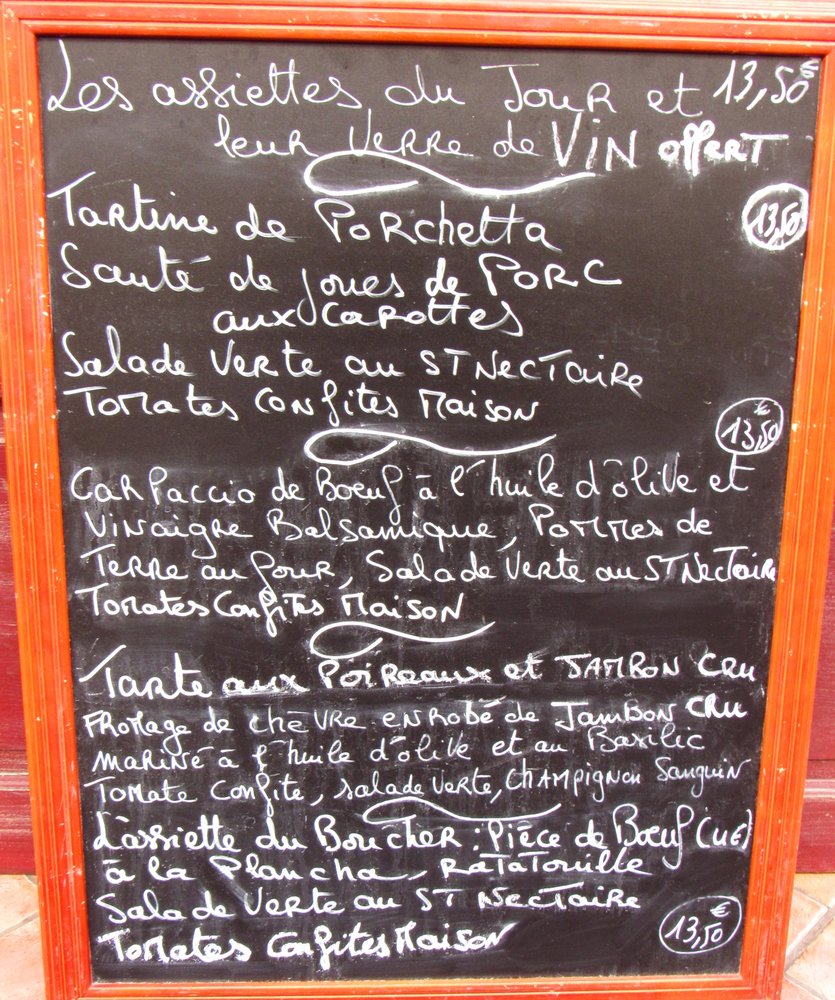 Les assiettes du Jour et 13,50€
leur verre de VIN offert
Tartine de Porchetta 13,50
Sauté de joues de PORC
aux carottes
Salade Verte au ST Nectaire
Tomates confites Maison
13,50€
Carpaccio de Boeuf à l'huile d'olive et
Vinaigre Balsamique, Pommes de
Terre au four, Salade Verte au ST Nectaire
Tomates Confites Maison
Tarte aux Poireaux et JAMBON CRU
Fromage de chèvre enrobé de Jambon CRU
mariné à l'huile d'olive et au Basilic
Tomate Confite, salade verte, CHAMPIGNON Sanguin
L'assiette du Boucher : Pièce de Boeuf (UE)
à la Plancha, Ratatouille
Salade Verte au ST Nectaire
Tomates Confites Maison 13,50€